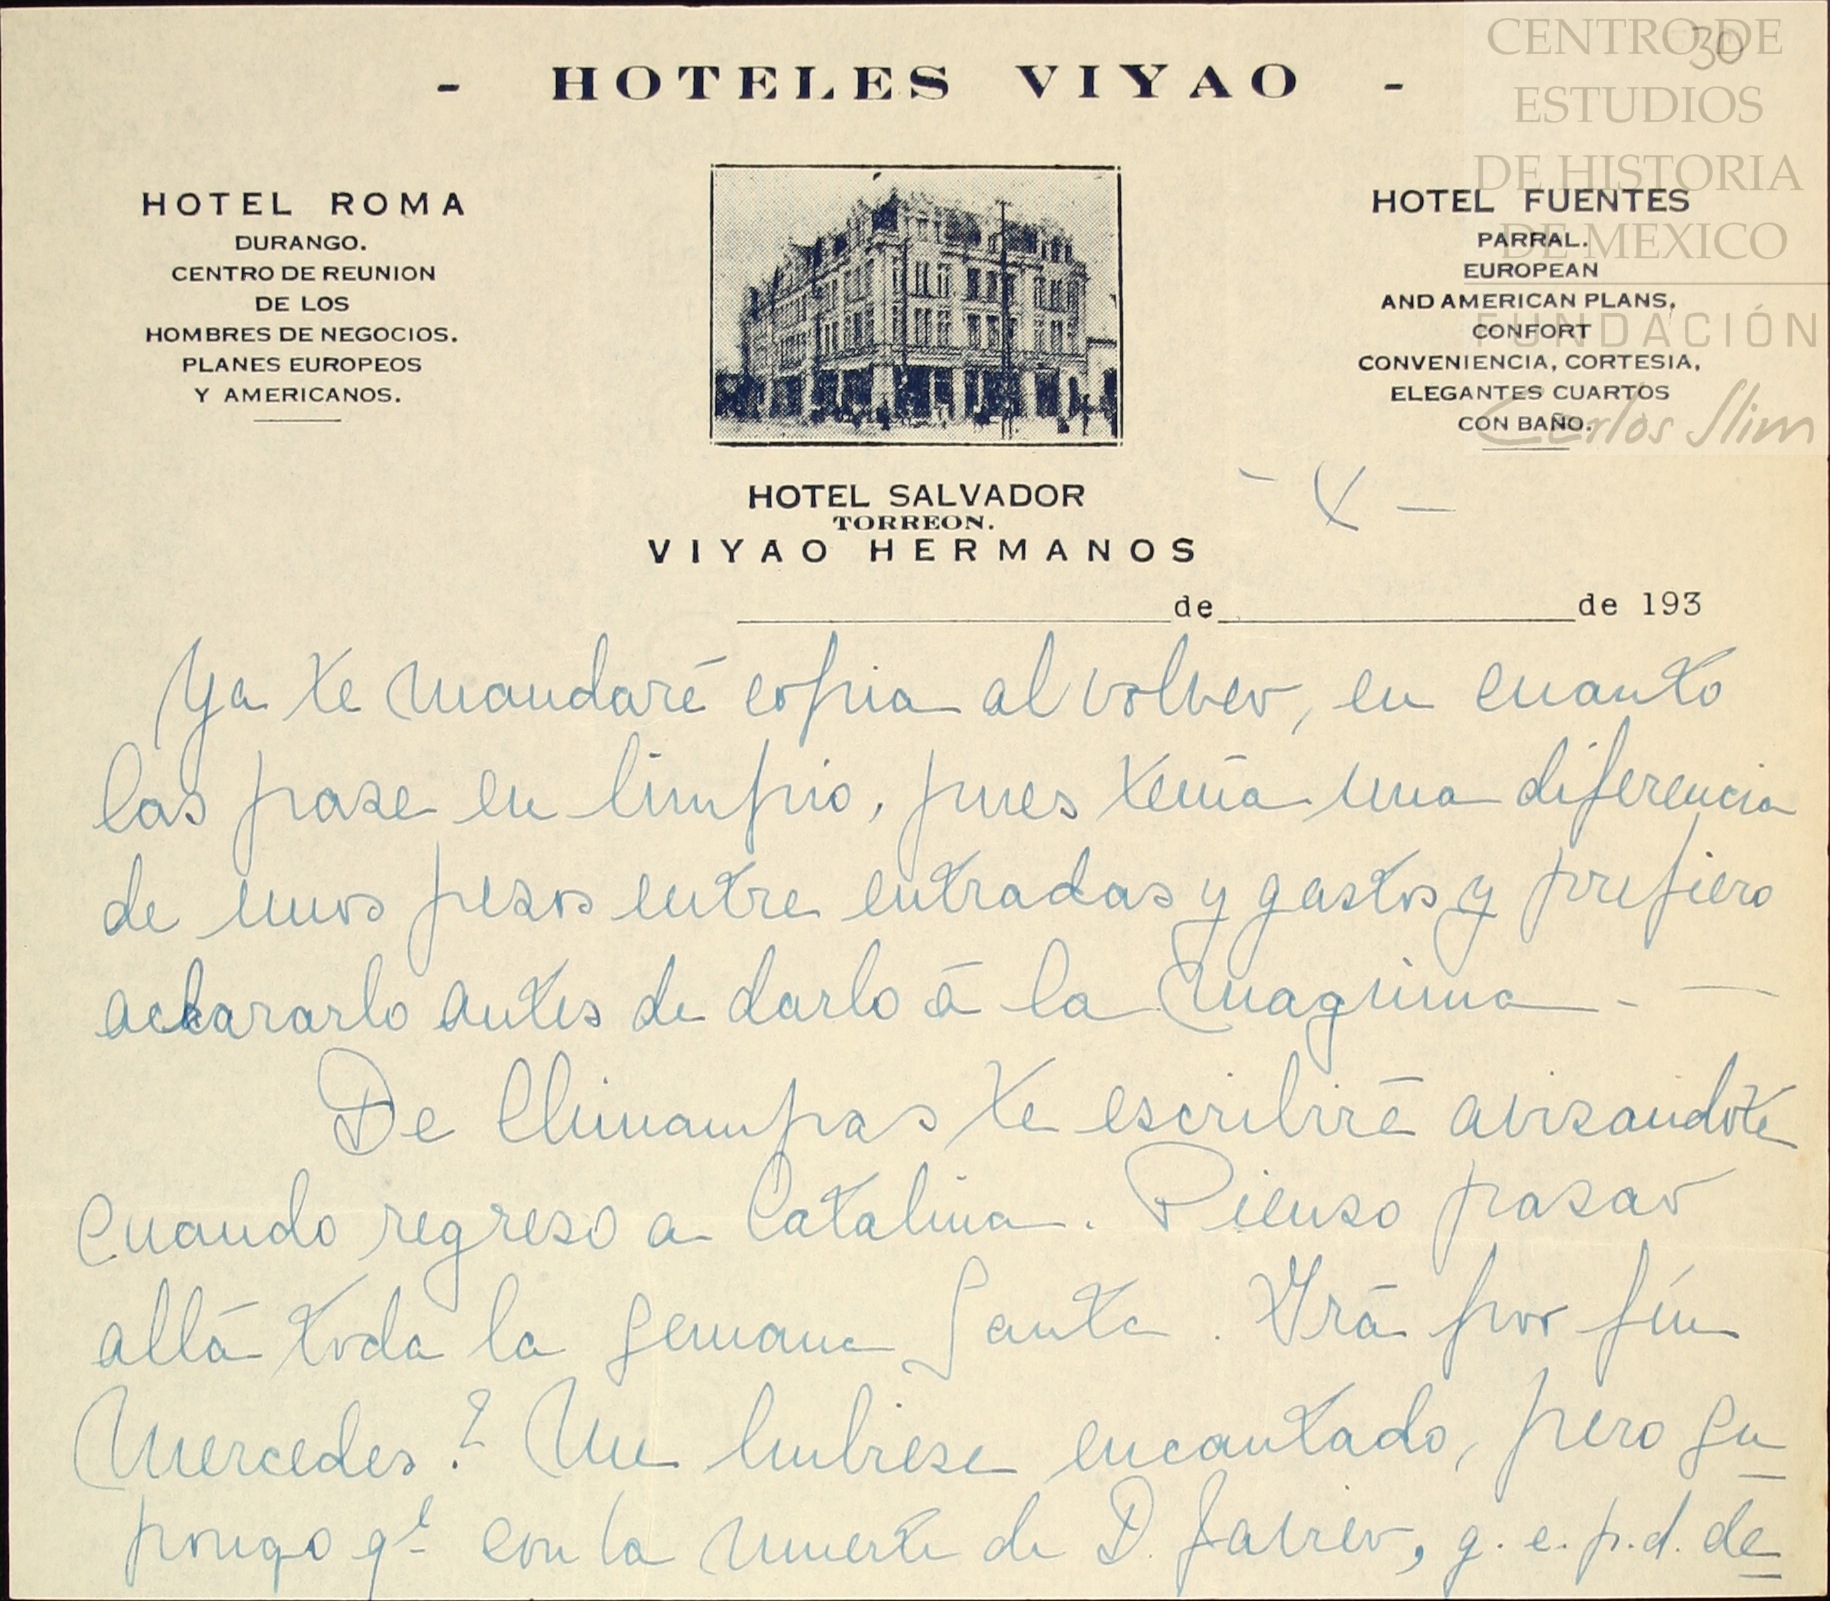 30
CENTRO DE
ESTUDIOS
DE HISTORIA
DE MEXICO
FUNDACIÓN
Carlos Slim
- HOTELES VIYAO -
HOTEL ROMA
DURANGO.
CENTRO DE REUNION
DE LOS
HOMBRES DE NEGOCIOS.
PLANES EUROPEOS
Y AMERICANOS.
HOTEL FUENTES
PARRAL.
EUROPEAN
AND AMERICAN PLANS,
CONFORT
CONVENIENCIA, CORTESIA,
ELEGANTES CUARTOS
CON BAÑO.
HOTEL SALVADOR
TORREON.
VIYAO HERMANOS
- X -
de de 193
Ya te mandaré copia al volver, en cuanto
las pase en limpio, pues tenía una diferencia
de unos pesos entre entradas y gastos y prefiero
aclararlo antes de darlo á la maquina - —
De Chinampas te escribiré avisandote
cuando regreso a Catalina. Pienso pasar
allá toda la Semana Santa. Irá por fín
Mercedes? Me hubiese encantado, pero su
pongo qe con la muerte de D. Javier, q.e.p.d. de